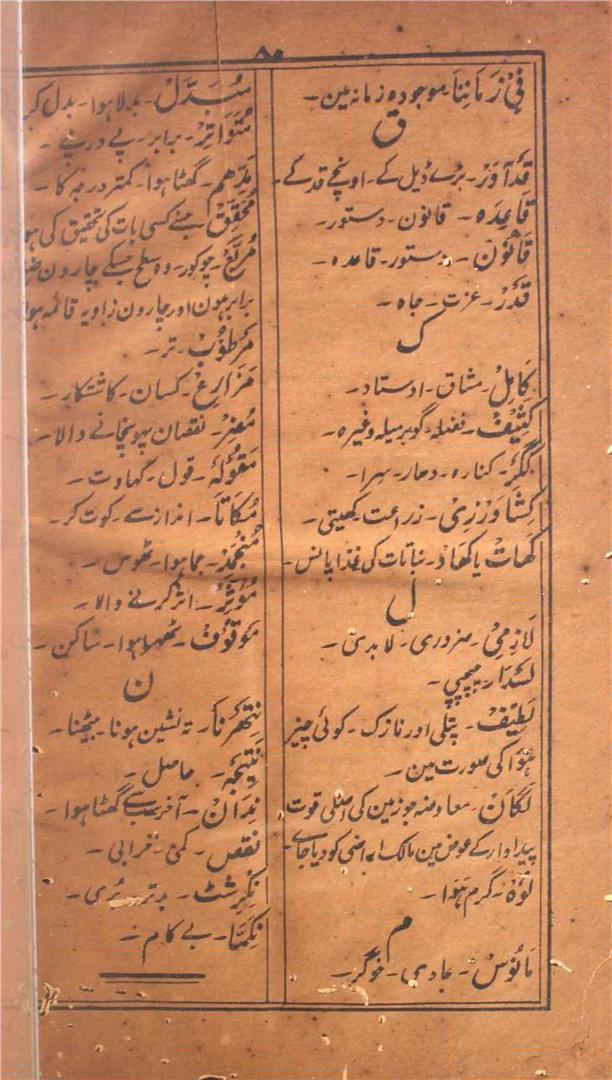 ۸۰
فِیْ زَمَانِنَا۔ موجودہ زمانہ مین۔
ق
قَدّآوَرْ۔ بڑے ڈیل کے۔ اونچے قد کے۔
قَاعِدَہ۔ قانون۔ دستور۔
قَانُوْن۔ دستور۔ قاعدہ۔
قَدْرْ۔ عزت۔ جاہ۔
ک
کَامِلْ۔ مشاق۔ اوستاد۔
کَثِیْفْ۔ فضلہ۔ گوبر میلہ وغیرہ۔
کگَرْ۔ کنارہ۔ دھار۔ سِرا۔
کِشَاوَرْزِیْ۔ زراعت۔ کھیتی۔
کَھاتْ یا کَھادْ۔ نباتات کی غذا پانس۔
ل
لَازِمِیْ۔ ضروری۔ لابدی۔
لسْدَار۔ چیچپی۔
لَطِیْفْ۔ پتلی اور نازک۔ کوئی چیز
ہَوَا کی صورت مین۔
لَگَانْ۔ معاوضہ جو زمین کی اصلی قوت
پیداوار کے عوض مین مالک اراضی کو دیا جاے۔
لُوْہ۔ گرم ہَوَا۔
م
مَانُوْسْ۔ عادی۔ خوگر۔
مُبَدَّلْ۔ بدلا ہوا۔ بدل کر
مُتَوَاتِرْ۔ برابر۔ پے در پے۔
مَدّھم۔ گھٹا ہوا۔ کمتر درجہ کا۔
مُحَقِّقْ۔ جسنے کسی بات کی تحقیق کی ہو
مُرَبَّعْ۔ چوکور۔ وہ سطح جسکے چارون
برابر ہون اور چارون زاویہ قائمہ ہو
مَرْطُوْبْ۔ تر۔
مَزَارِعْ۔ کسان۔ کاشتکار۔
مُضِرْ۔ نقصان پہونچانے والا۔
مَقُوْلَہ۔ قول۔ کہاوت۔
مُکَاتَا۔ اندازسے۔ کوت کر۔
مُنْجَمِدْ۔ جما ہوا۔ ٹھوس۔
مُوَثِّرْ۔ اثر کرنے والا۔
مَوْقُوْفْ۔ ٹھہرا ہوا۔ ساکن۔
ن
نِتھَرْنَا۔ تہ نشین ہونا۔ بیٹھنا۔
نَتِیْجَہ۔ حاصل۔
نِدَانْ۔ آخر۔ سبسے گھٹا ہوا۔
نَقص۔ کمی۔ خرابی۔
نِکِرِشٹ۔ بدتر۔ بُری۔
نِکَمَّا۔ بے کام۔